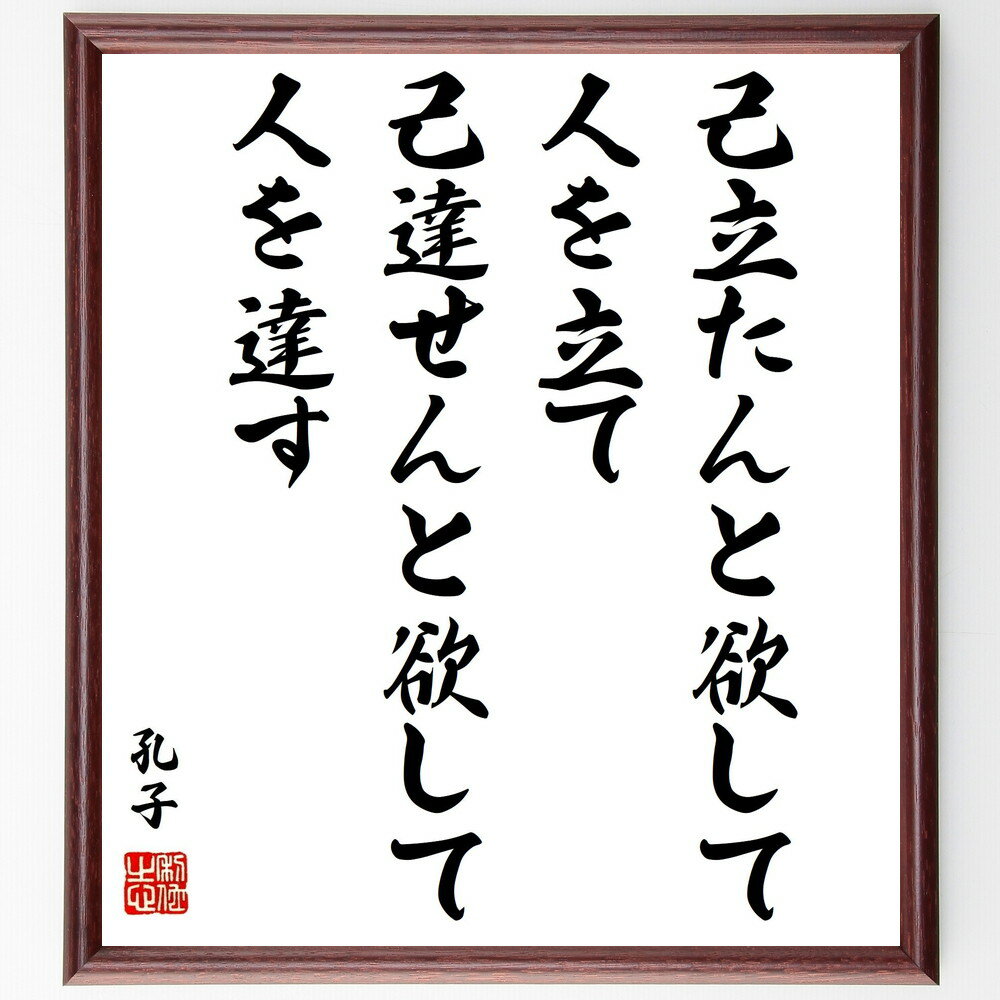 己立たんと欲して
人を立て
己達せんと欲して
人を達す
孔子